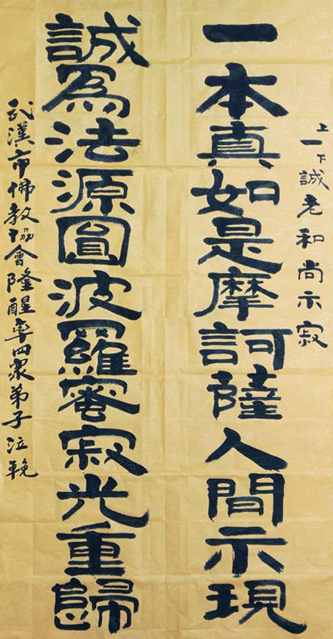 上一下誠老和尚示寂
一本真如是摩訶薩人間示現
誠為法源圓波羅蜜寂光重歸
武漢市佛教協會隆醒率四衆弟子泣輓